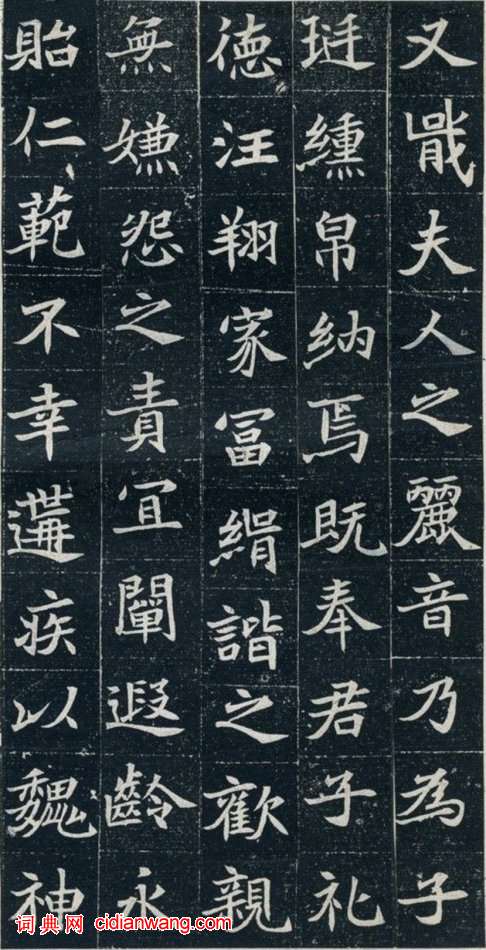 又戢夫人之麗音乃為子
珽纁帛納焉既奉君子礼
徳汪翔家冨緝諧之歡親
無嫌怨之責宜闡遐齡永
貽仁範不幸遘疾以魏神
词典网 cidianwang.com